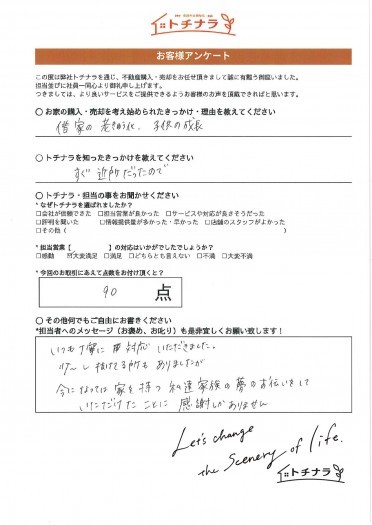 トチナラ
お客様アンケート
この度は弊社トチナラを通じ、不動産購入・売却をお任せ頂きまして誠に有難う御座いました。
担当並びに社員一同心より御礼申し上げます。
つきましては、より良いサービスをご提供できるようお客様のお声を頂戴できればと思います。
○ お家の購入・売却を考え始められたきっかけ・理由を教えてください
借家の老朽化、子供の成長
○ トチナラを知ったきっかけを教えてください
すぐ近所だったので
○ トチナラ・担当の事をお聞かせください
* なぜトチナラを選ばれましたか?
□会社が信頼できた □担当営業が良かった □サービスや対応が良さそうだった
□評判を聞いた □情報提供量が多かった・早かった □店舗のスタッフがよかった
□その他 ( )
* 担当営業【 】の対応はいかがでしたでしょうか?
□感動 ☑大変満足 □満足 □どちらとも言えない □不満 □大変不満
* 今回のお取引にあえて点数をお付け頂くと?
90 点
○ その他何でもご自由にお書きください
*担当者へのメッセージ(お褒め、お叱り)も是非宜しくお願い致します!
いつも丁寧に 対応 いただきました。
少〜し抜けてる所も ありましたが
今になっては 家を持つ 私達家族の夢のお伝いをして
いただけたことに 感謝しかありません
Let's change
the Scenery of life.
トチナラ